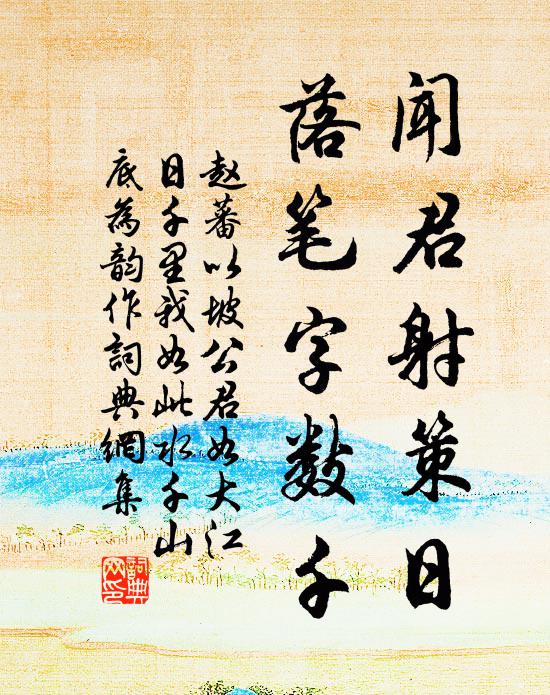 闻君射策日
落笔字数千
赵蕃以坡公君如大江
日千里我如此水千山
底为韵作词典网集
词典网印